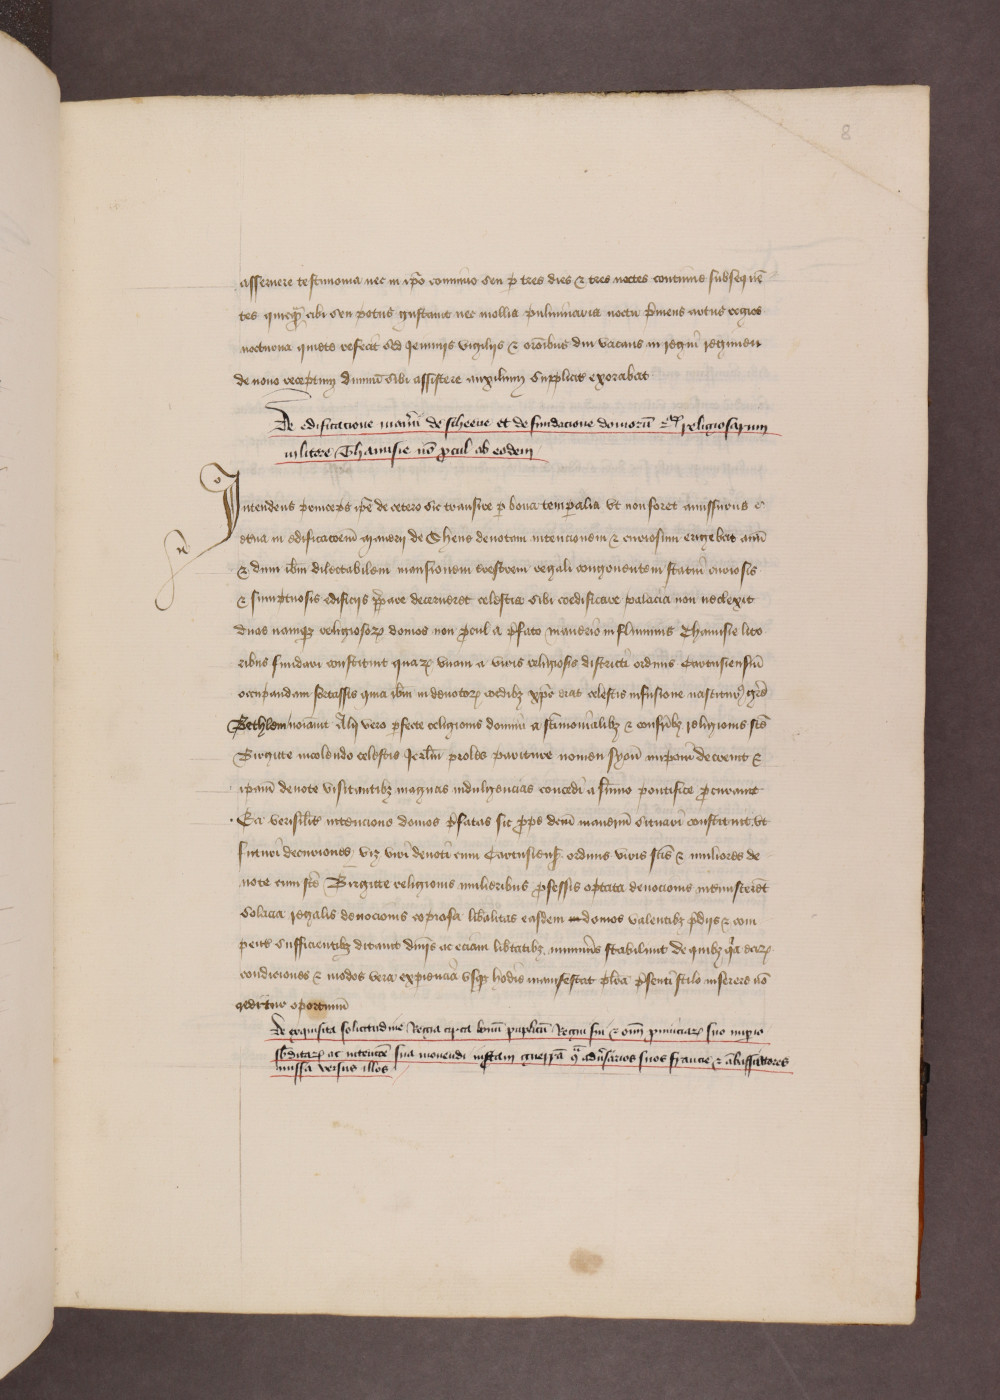 8
asseruere testimonia nec in ip̄o conuiuio seu p tres dies ⁊ tres noctes continuis subsequē
tes quicq̄ȝ cibi seu potus gustauit nec mollia puluinaria noctu p̄mens artus regios
nocturna quiete refecit sed Jeiunijs vigilijs ⁊ or̄onibus diu vacans in regni regimen
de nouo receptum diuinū sibi assistere auxilium supplicit᷑ exorabat
De edificacione man̄ii de scheene et de fundacione domorū religiosarum
in litore Thamisie nō ꝓcul ab eodem
Intendens princeps ip̄e de cetero sic transire p bona temporalia vt non foret amissurus e
terna in edificacioē manerij de Shene deuotam intencionem ⁊ curiosum erigebat aīm
⁊ dum ib̄m dilectabilem mansionem regali congruentem statui curiosis
⁊ sumptuosis edificijs p̄pare decerneret celestia sibi coedificare palacia non neclexit
duas namqȝ religiosorꝫ domos non ꝓcul a p̄fato manerio in fluminis Thamisie lito
ribus fundari constituit quarꝫ vnam a viris religiosis districti ordinis Cartusiensiū
occupandam fortassis quia ib̄m in deuotorꝫ cordibȝ xp̄c erat celestis infusione nascitur
Bethlem noiauit Alij vero p̄fecte religionis domui a sc̄imonialibȝ ⁊ confr̄ibȝ religionis sc̄e
Birgitte incolende celestis Jer̄lm proles pariture nomen syon inponi decreuit ⁊
ipam deuote visitantibȝ magnas indulgencias concedi a sūmo pontifice ꝓcurauit
Ea verisilit᷑ intencione domos p̄fatas sic ꝓpe dcm̄ maneriū situari constituit vt
futuri decuriones viȝ viri deuoti cum Cartusiens̄ ordinis viris sc̄is ⁊ muliores de
uote cum sc̄e Birgitte religionis mulieribus ꝓfessis optata deuocionis ministrēt
solacia regalis deuocionis copiosa lib̄alitas easdem domos valentibȝ p̄dijs ⁊ com
petēt᷑ sufficientibȝ ditauit diuīs ac eciam lib̄tatibȝ innumīs stabiliuit de quibȝ q̄a earꝫ
condiciones ⁊ modos vera expiencia vsqȝ hodie manifestat pl̄ra p̄senti stilo inserere nō
creditur oportunū
De exquisita solicitudine Regia circa bonū puplicū Regni sui ⁊ oīm ꝓuinciarꝫ suo impio
sb̄ditarꝫ ac intencōe sua mouendi iustam guerrā ꝗ̄ adūsarios suos francie ⁊ ābassiatores
missa versus illos